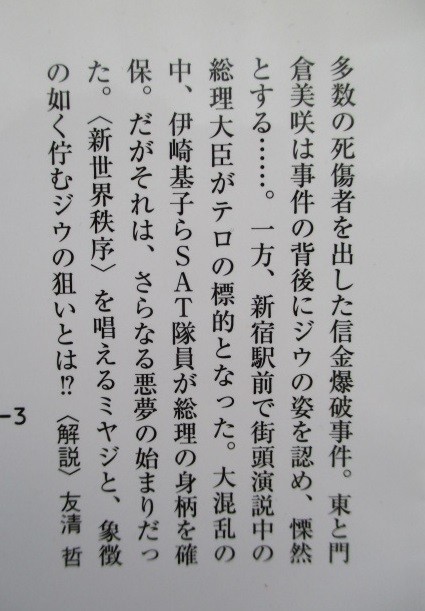 多数の死傷者を出した信金爆破事件。東と門
倉美咲は事件の背後にジウの姿を認め、慄然
とする……。一方、新宿駅前で街頭演説中の
総理大臣がテロの標的となった。大混乱の
中、伊崎基子らSAT隊員が総理の身柄を確
保。だがそれは、さらなる悪夢の始まりだっ
た。〈新世界秩序〉を唱えるミヤジと、象徴
の如く佇むジウの狙いとは!? 〈解説〉友清 哲
-3